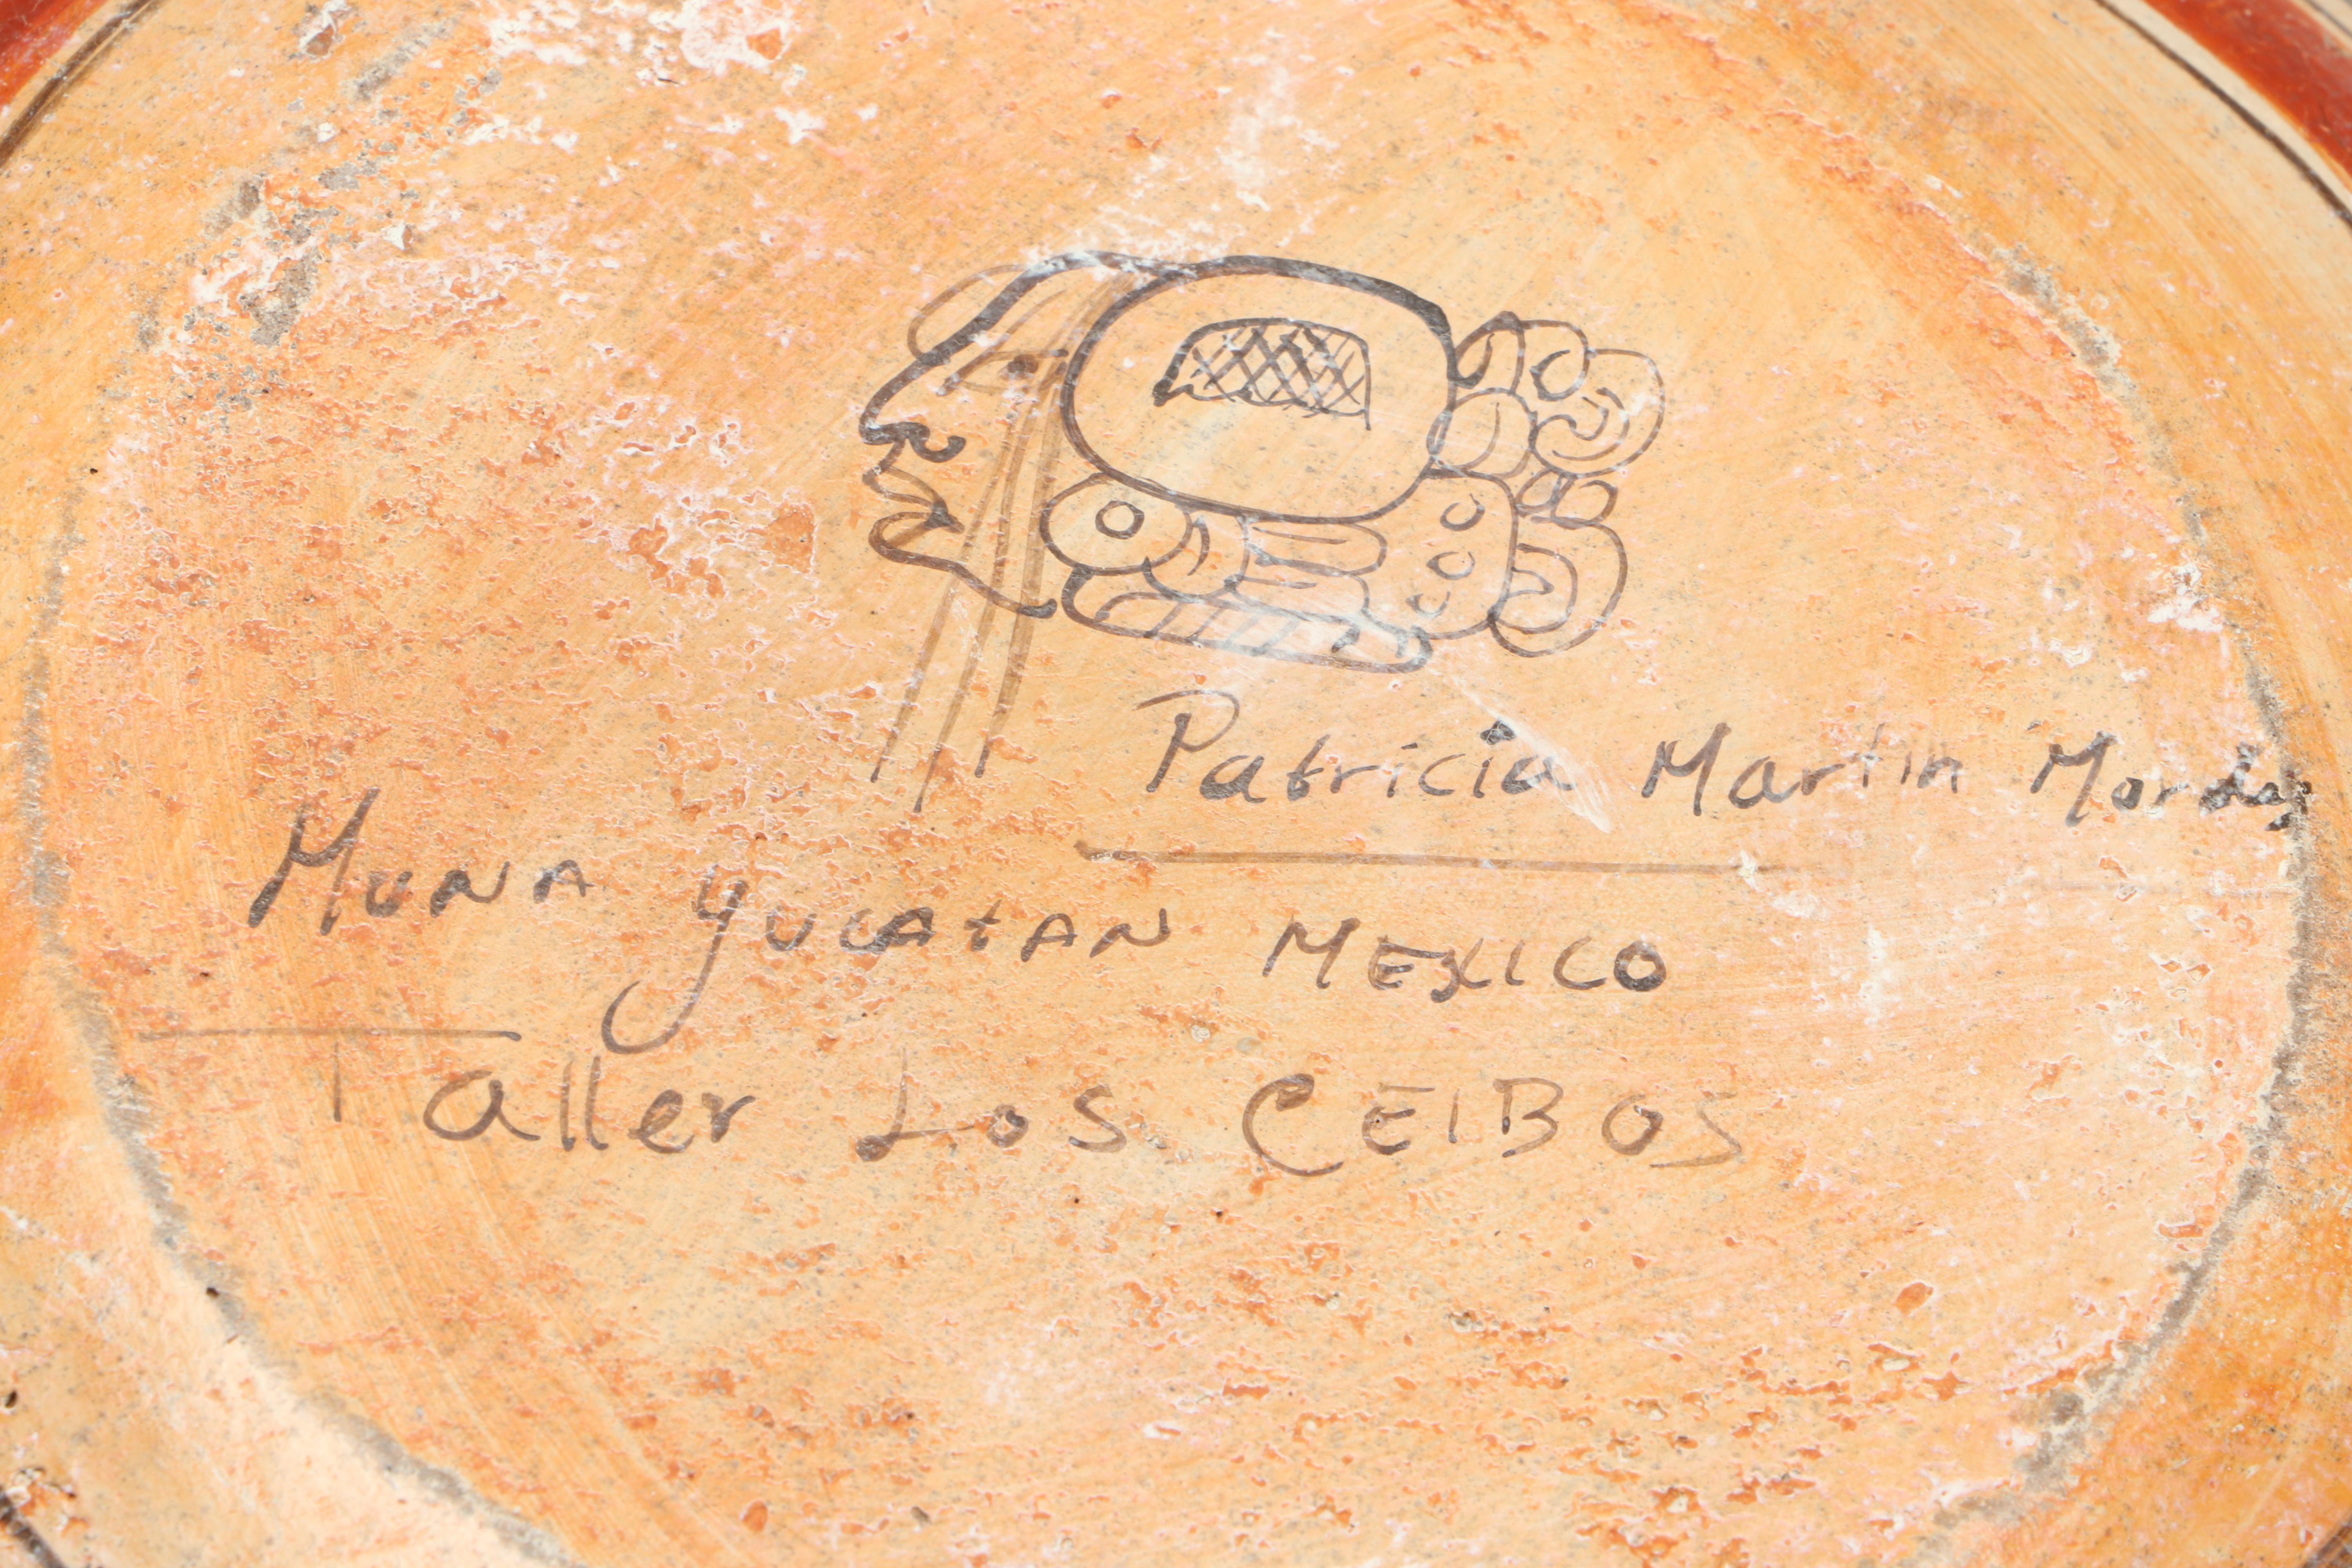 Patricia Martin
Muna Yucatan Mexico
Taller Los CEIBOS